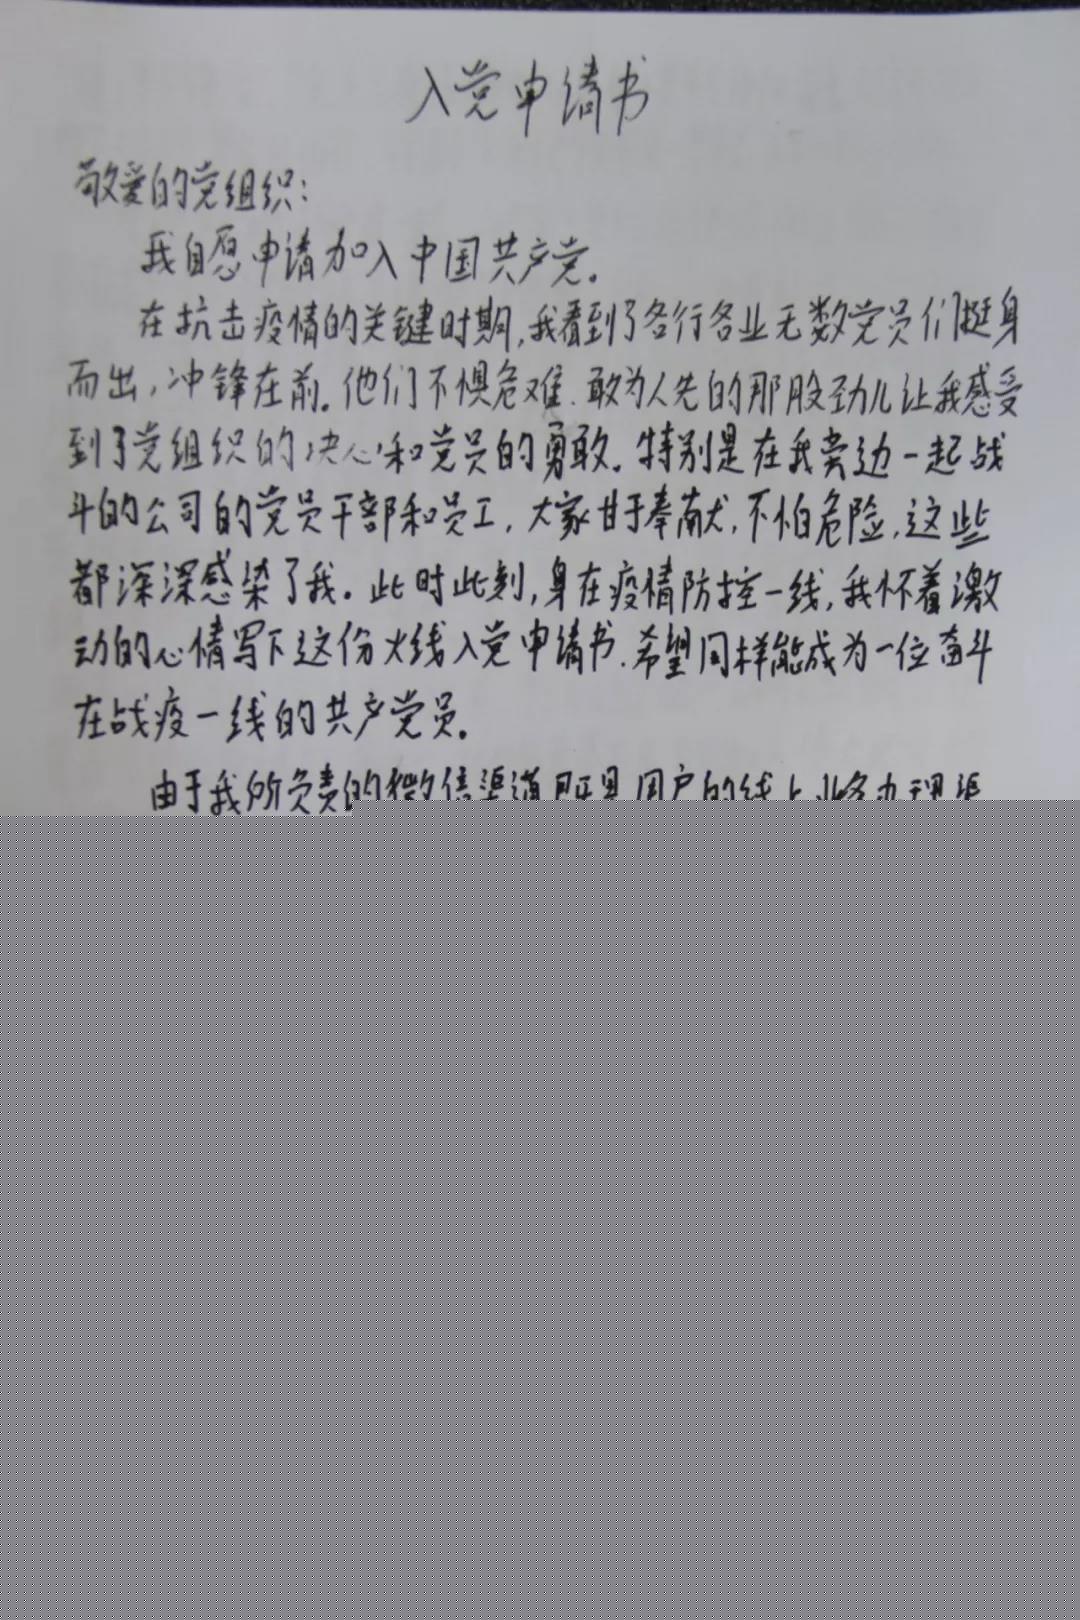 入党申请书
敬爱的党组织：
我自愿申请加入中国共产党。
在抗击疫情的关键时期，我看到了各行各业无数党员们挺身
而出，冲锋在前。他们不惧危难、敢为人先的那股劲儿让我感受
到了党组织的决心和党员的勇敢。特别是在我旁边一起战
斗的公司的党员干部和员工，大家甘于奉献，不怕危险，这些
都深深感染了我。此时此刻，身在疫情防控一线，我怀着激
动的心情写下这份火线入党申请书，希望同样能成为一位奋斗
在战疫一线的共产党员。
由于我所负责的微信渠道既是用户的线上业务办理渠